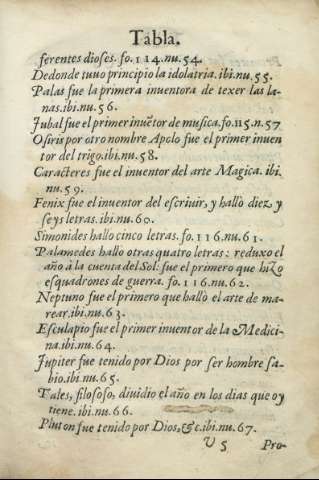 Tabla.
ferentes dioses. fo. 114. nu. 54.
Dedonde tuuo principio la idolatria. ibi. nu. 55.
Palas fue la primera inuentora de texer las la-
nas. ibi. nu. 56.
Iubal fue el primer inuẽtor de musica. fo. 115. n. 57
Osiris por otro nombre Apolo fue el primer inuen
tor del trigo. ibi. nu. 58.
Caracteres fue el inuentor del arte Magica. ibi.
nu. 59.
Fenix fue el inuentor del escriuir, y hallo diez y
seys letras. ibi. nu. 60.
Simonides hallo cinco letras. fo. 116. nu. 61.
Palamedes hallo otras quatro letras: reduxo el
año à la cuenta del Sol: fue el primero que hizo
esquadrones de guerra. fo. 116. nu. 62.
Neptuno fue el primero que hallo el arte de ma-
rear. ibi. nu. 63.
Esculapio fue el primer inuentor de la Medici-
na. ibi. nu. 64.
Iupiter fue tenido por Dios por ser hombre sa-
bio. ibi. nu. 65.
Tales, filosofo, diuidio el año en los dias que oy
tiene. ibi. nu. 66.
Pluton fue tenido por Dios, &c. ibi. nu. 67.
V 5 Pro-